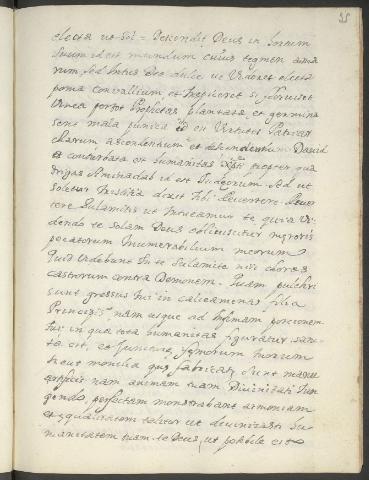 35
electa ut Sol = Descendit Deus in hortum
suum id est mundum cuius tegmen ama
rum, sed intus Deo dulce ut Videret electa
poma convallium et inspiceret si floruisset
Vinea per Prophetas plantata, et germina
sent mala punica id est Virtutes Patriar
charum ascendentium et descendentium. David
et conturbata est humanitas Xpti propter qua
drigas Aminadab id est Judeorum. Sed ut
soletur tristitia dixit tibi Revertere Rever
tere Sulamitis ut intueamur te quia Vi
dendo te solam Deus obliviscitur meroris
peccatorum innumerabilium meorum
Quid Videbunt in te Sulamite nisi choros
castrorum contra Demonem. Quam pulchri
sunt gressus tui in calceamentis filia
Principis nam usque ad infimam porcionem
tui in qua tota humanitas figuratur sanc
ta est, et juncturae femorum tuorum
sicut monilia quae fabricata sunt manu
artificis nam animam tuam Divinitati jun
gendo, perfectam monstrabant armoniam
et equalitatem taliter ut divinizasti hu
manitatem tuam te Deus, ut possibile est